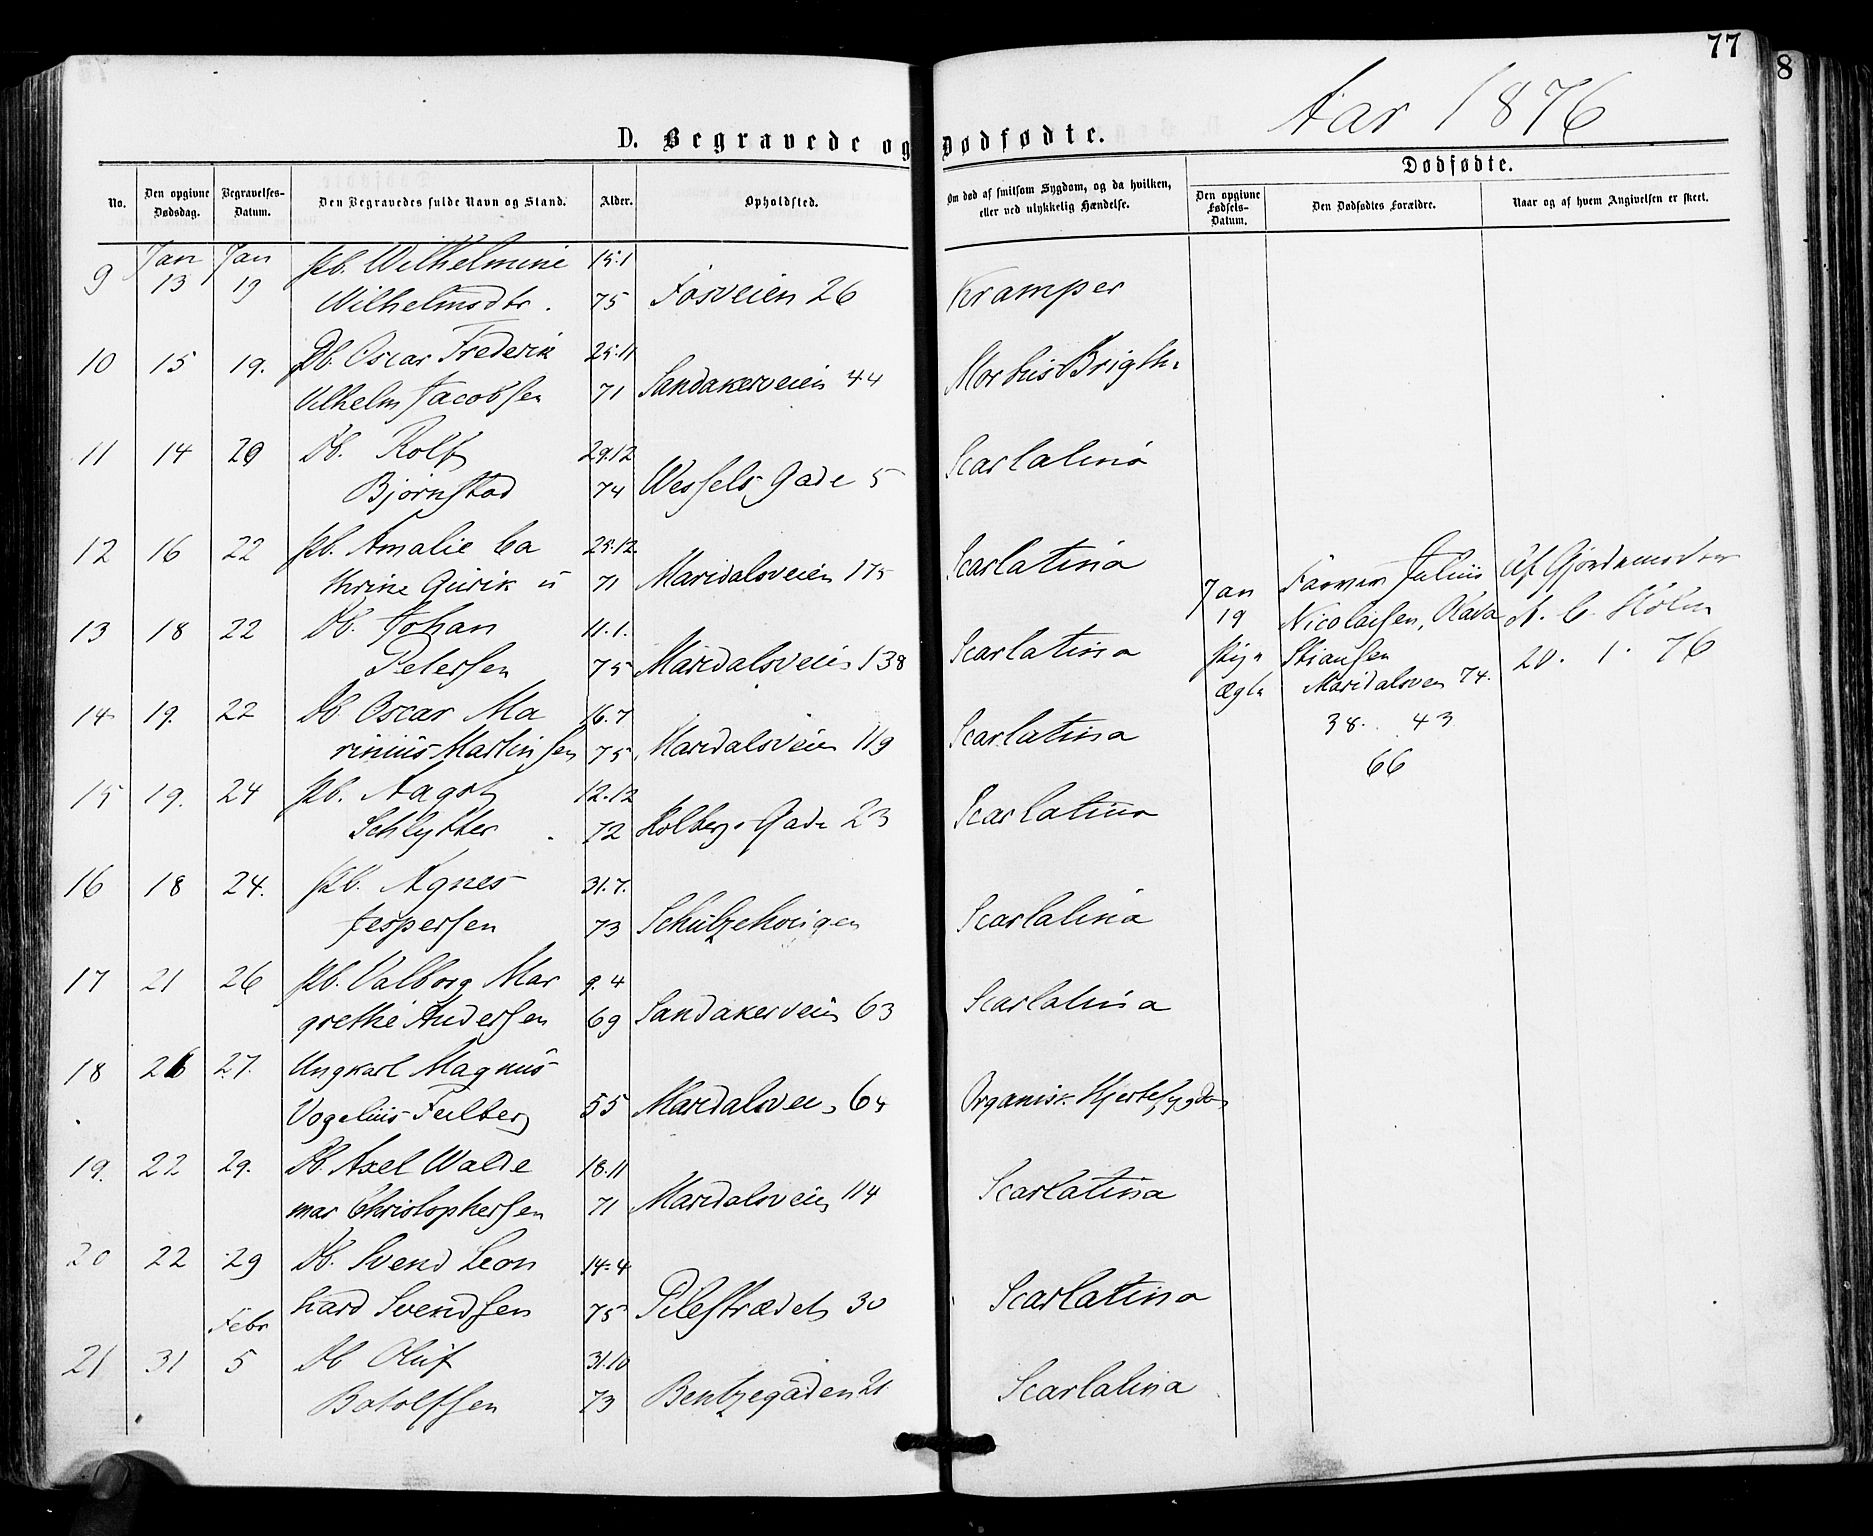 77
8
Aar 1876
D. Begravede og Dødfødte.
No.
Den opgivne Dødsdag.
Begravelses-Datum.
Den Begravedes fulde Navn og Stand.
Alder.
Opholdsted.
Om død af smitsom Sygdom, og da hvilken, eller ved ulykkelig Hændelse.
Dødfødte.
Den opgivne Fødsels-Datum.
Den Dødfødtes Forældre.
Naar og af hvem Angivelsen er skeet.
Jan Jan Pb. Wilhelmine 15.1
9 13 19 Wilhelmsdtr. 75 Fosveien 26 Kramper
10 15 19. Db. Oscar Frederik 25.11
Vilhelm Jacobsen 71 Sandakerveien 44 Morbus Brigth.
11 14 20 Db. Rolf 29.12
Bjørnstad 74 Wessels Gade 5 Scarlatina
12 16 22 Pb. Amalie Ca 25.12
thrine 71 Maridalsveien 175 Scarlatina
13 18 22 Db. Johan 11.1.
Petersen 75 Maridalsveien 138 Scarlatina
Jan
19
Julius
Nicolaisen, Olava
Maridalsveien 74.
38. 43
66
Af Gjordemoder
A. C. Holm
20. 1. 76
14 19. 22 Db. Oscar Ma 16.7
rinius Martinsen 75 Maridalsveien 119 Scarlatina
15 19. 24 Pb. Aagot 12.12
Schlytter 72 Holbergs Gade 23 Scarlatina
16 18 24. Pb. Agnes 31.7.
Jespersen 73 Schultzehougen Scarlatina
17 21 26 Pb. Valborg Mar 9.4
grethe Andersen 69 Sandakerveien 63 Scarlatina
18 26 27. Ungkarl Magnus
Vogelius 55 Maridalsveien 64 Organisk Hjertesygdom
19. 22 29. Db. Axel Walde 18.11
mar Christophersen 71 Maridalsveien 114 Scarlatina
20 22 29 Db. Svend Leon 14.4
hard Svendsen 75 Pilestrædet 30 Scarlatina
Febr
21 31 5 Db Oluf 31.10
Botolfsen 73 Bentzegaden 21 Scarlatina